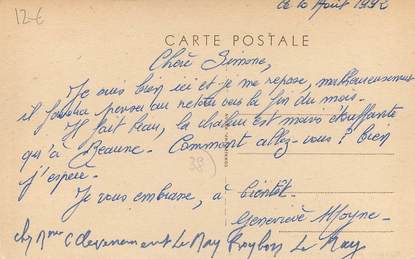 12 €
ce 10 Août 1992
CARTE POSTALE
Chère Simone,
Je suis bien ici et je me repose, malheureusement
il faudra penser au retour vers la fin du mois.
Il fait beau, la chaleur est moins étouffante
qu'à Beaune. Comment allez-vous ? bien
j'espère.
38)
Je vous embrasse, à bientôt.
Geneviève Moyne
chez Mme Le May Roybon Le May